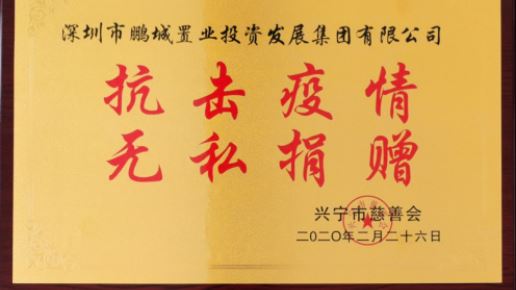 深圳市鹏城置业投资发展集团有限公司
抗击疫情
无私捐赠
兴宁市慈善会
二〇二〇年二月二十六日